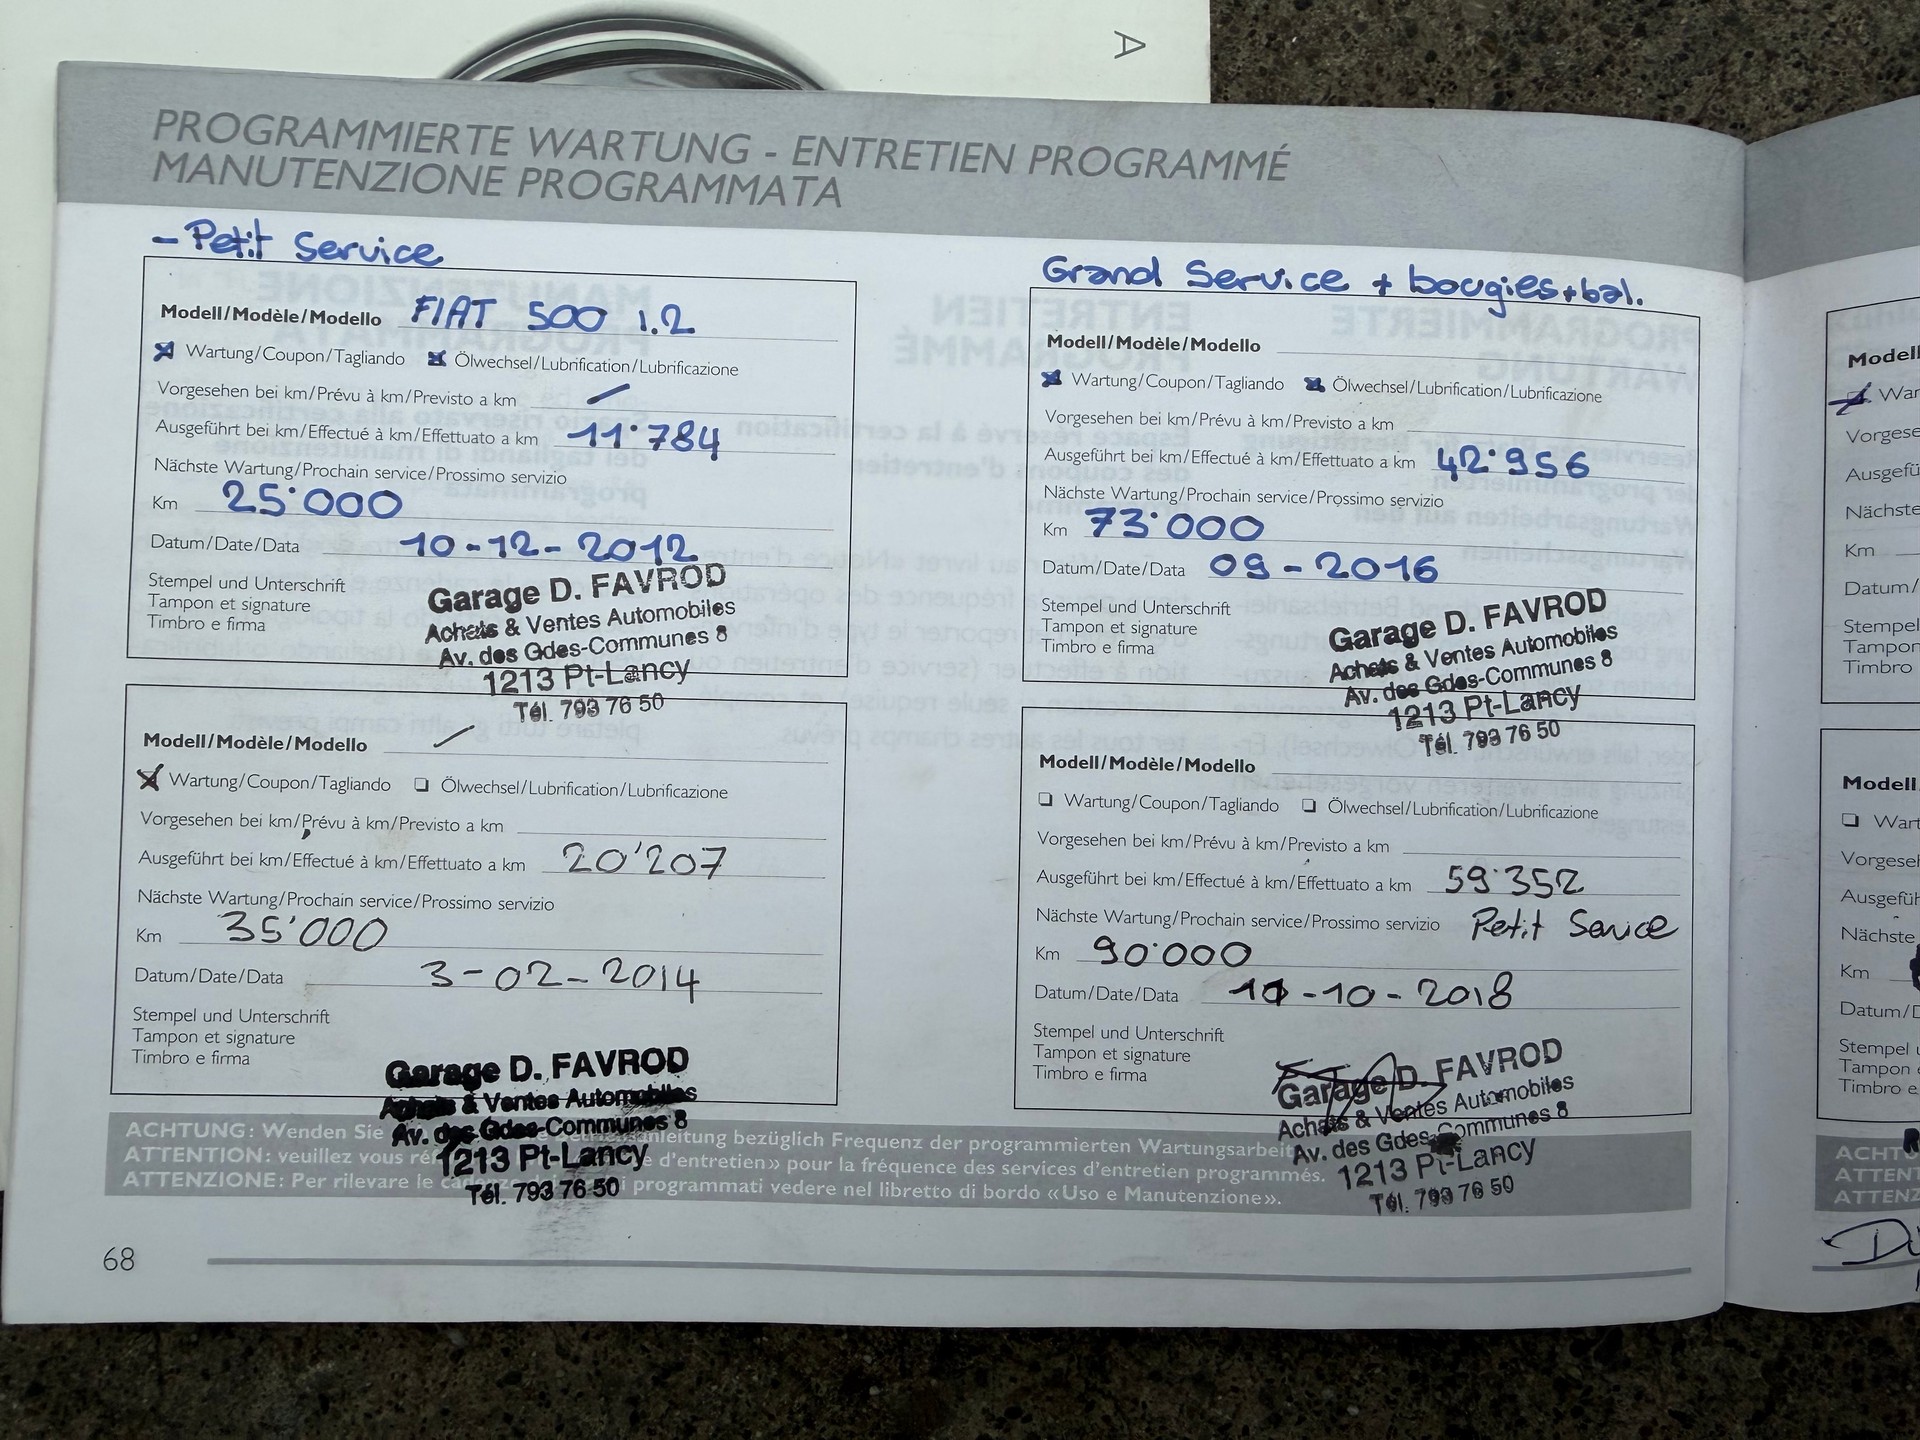 A
PROGRAMMIERTE WARTUNG - ENTRETIEN PROGRAMMÉ
MANUTENZIONE PROGRAMMATA
- Petit Service
Modell/Modèle/Modello FIAT 500 1.2
Wartung/Coupon/Tagliando Ölwechsel/Lubrification/Lubrificazione
Vorgesehen bei km/Prévu à km/Previsto a km
Ausgeführt bei km/Effectué à km/Effettuato a km 11'784
Nächste Wartung/Prochain service/Prossimo servizio
Km 25'000
Datum/Date/Data 10-12-2012
Stempel und Unterschrift
Tampon et signature
Timbro e firma
Garage D. FAVROD
Achats & Ventes Automobiles
Av. des Gdes-Communes 8
1213 Pt-Lancy
Tél. 793 76 50
Modell/Modèle/Modello
Wartung/Coupon/Tagliando Ölwechsel/Lubrification/Lubrificazione
Vorgesehen bei km/Prévu à km/Previsto a km
Ausgeführt bei km/Effectué à km/Effettuato a km 20'207
Nächste Wartung/Prochain service/Prossimo servizio
Km 35'000
Datum/Date/Data 3-02-2014
Stempel und Unterschrift
Tampon et signature
Timbro e firma
Garage D. FAVROD
Achats & Ventes Automobiles
Av. des Gdes-Communes 8
1213 Pt-Lancy
Tél. 793 76 50
Grand Service + bougies + bal.
Modell/Modèle/Modello
Wartung/Coupon/Tagliando Ölwechsel/Lubrification/Lubrificazione
Vorgesehen bei km/Prévu à km/Previsto a km
Ausgeführt bei km/Effectué à km/Effettuato a km 42'956
Nächste Wartung/Prochain service/Prossimo servizio
Km 73'000
Datum/Date/Data 09-2016
Stempel und Unterschrift
Tampon et signature
Timbro e firma
Garage D. FAVROD
Achats & Ventes Automobiles
Av. des Gdes-Communes 8
1213 Pt-Lancy
Tél. 793 76 50
Modell/Modèle/Modello
Wartung/Coupon/Tagliando Ölwechsel/Lubrification/Lubrificazione
Vorgesehen bei km/Prévu à km/Previsto a km
Ausgeführt bei km/Effectué à km/Effettuato a km 59'352
Nächste Wartung/Prochain service/Prossimo servizio Petit Service
Km 90'000
Datum/Date/Data 11-10-2018
Stempel und Unterschrift
Tampon et signature
Timbro e firma
Garage D. FAVROD
Achats & Ventes Automobiles
Av. des Gdes-Communes 8
1213 Pt-Lancy
Tél. 793 76 50
ACHTUNG: Wenden Sie bezüglich Frequenz der programmierten Wartungsarbeit
ATTENTION: veuillez vous d'entretien» pour la fréquence des services d'entretien programmés.
ATTENZIONE: Per rilevare le programmati vedere nel libretto di bordo «Uso e Manutenzione».
68
Modell
War
Vorgese
Ausgefü
Nächste
Km
Datum/
Stempel
Tampon
Timbro
Modell
Wart
Vorgeseh
Ausgefüh
Nächste
Km
Datum/D
Stempel u
Tampon e
Timbro e
ACHTU
ATTENT
ATTENZ